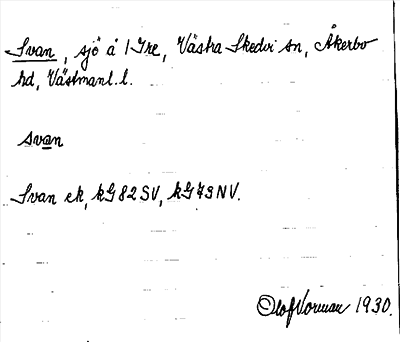 Svan, sjö å 1 Gre, Västra Skedvi sn, Åkerbo
hd, Västmanl. l.
svan
Svan ek, kG 82 SV, kG 73 NV.
Olof Norman 1930.